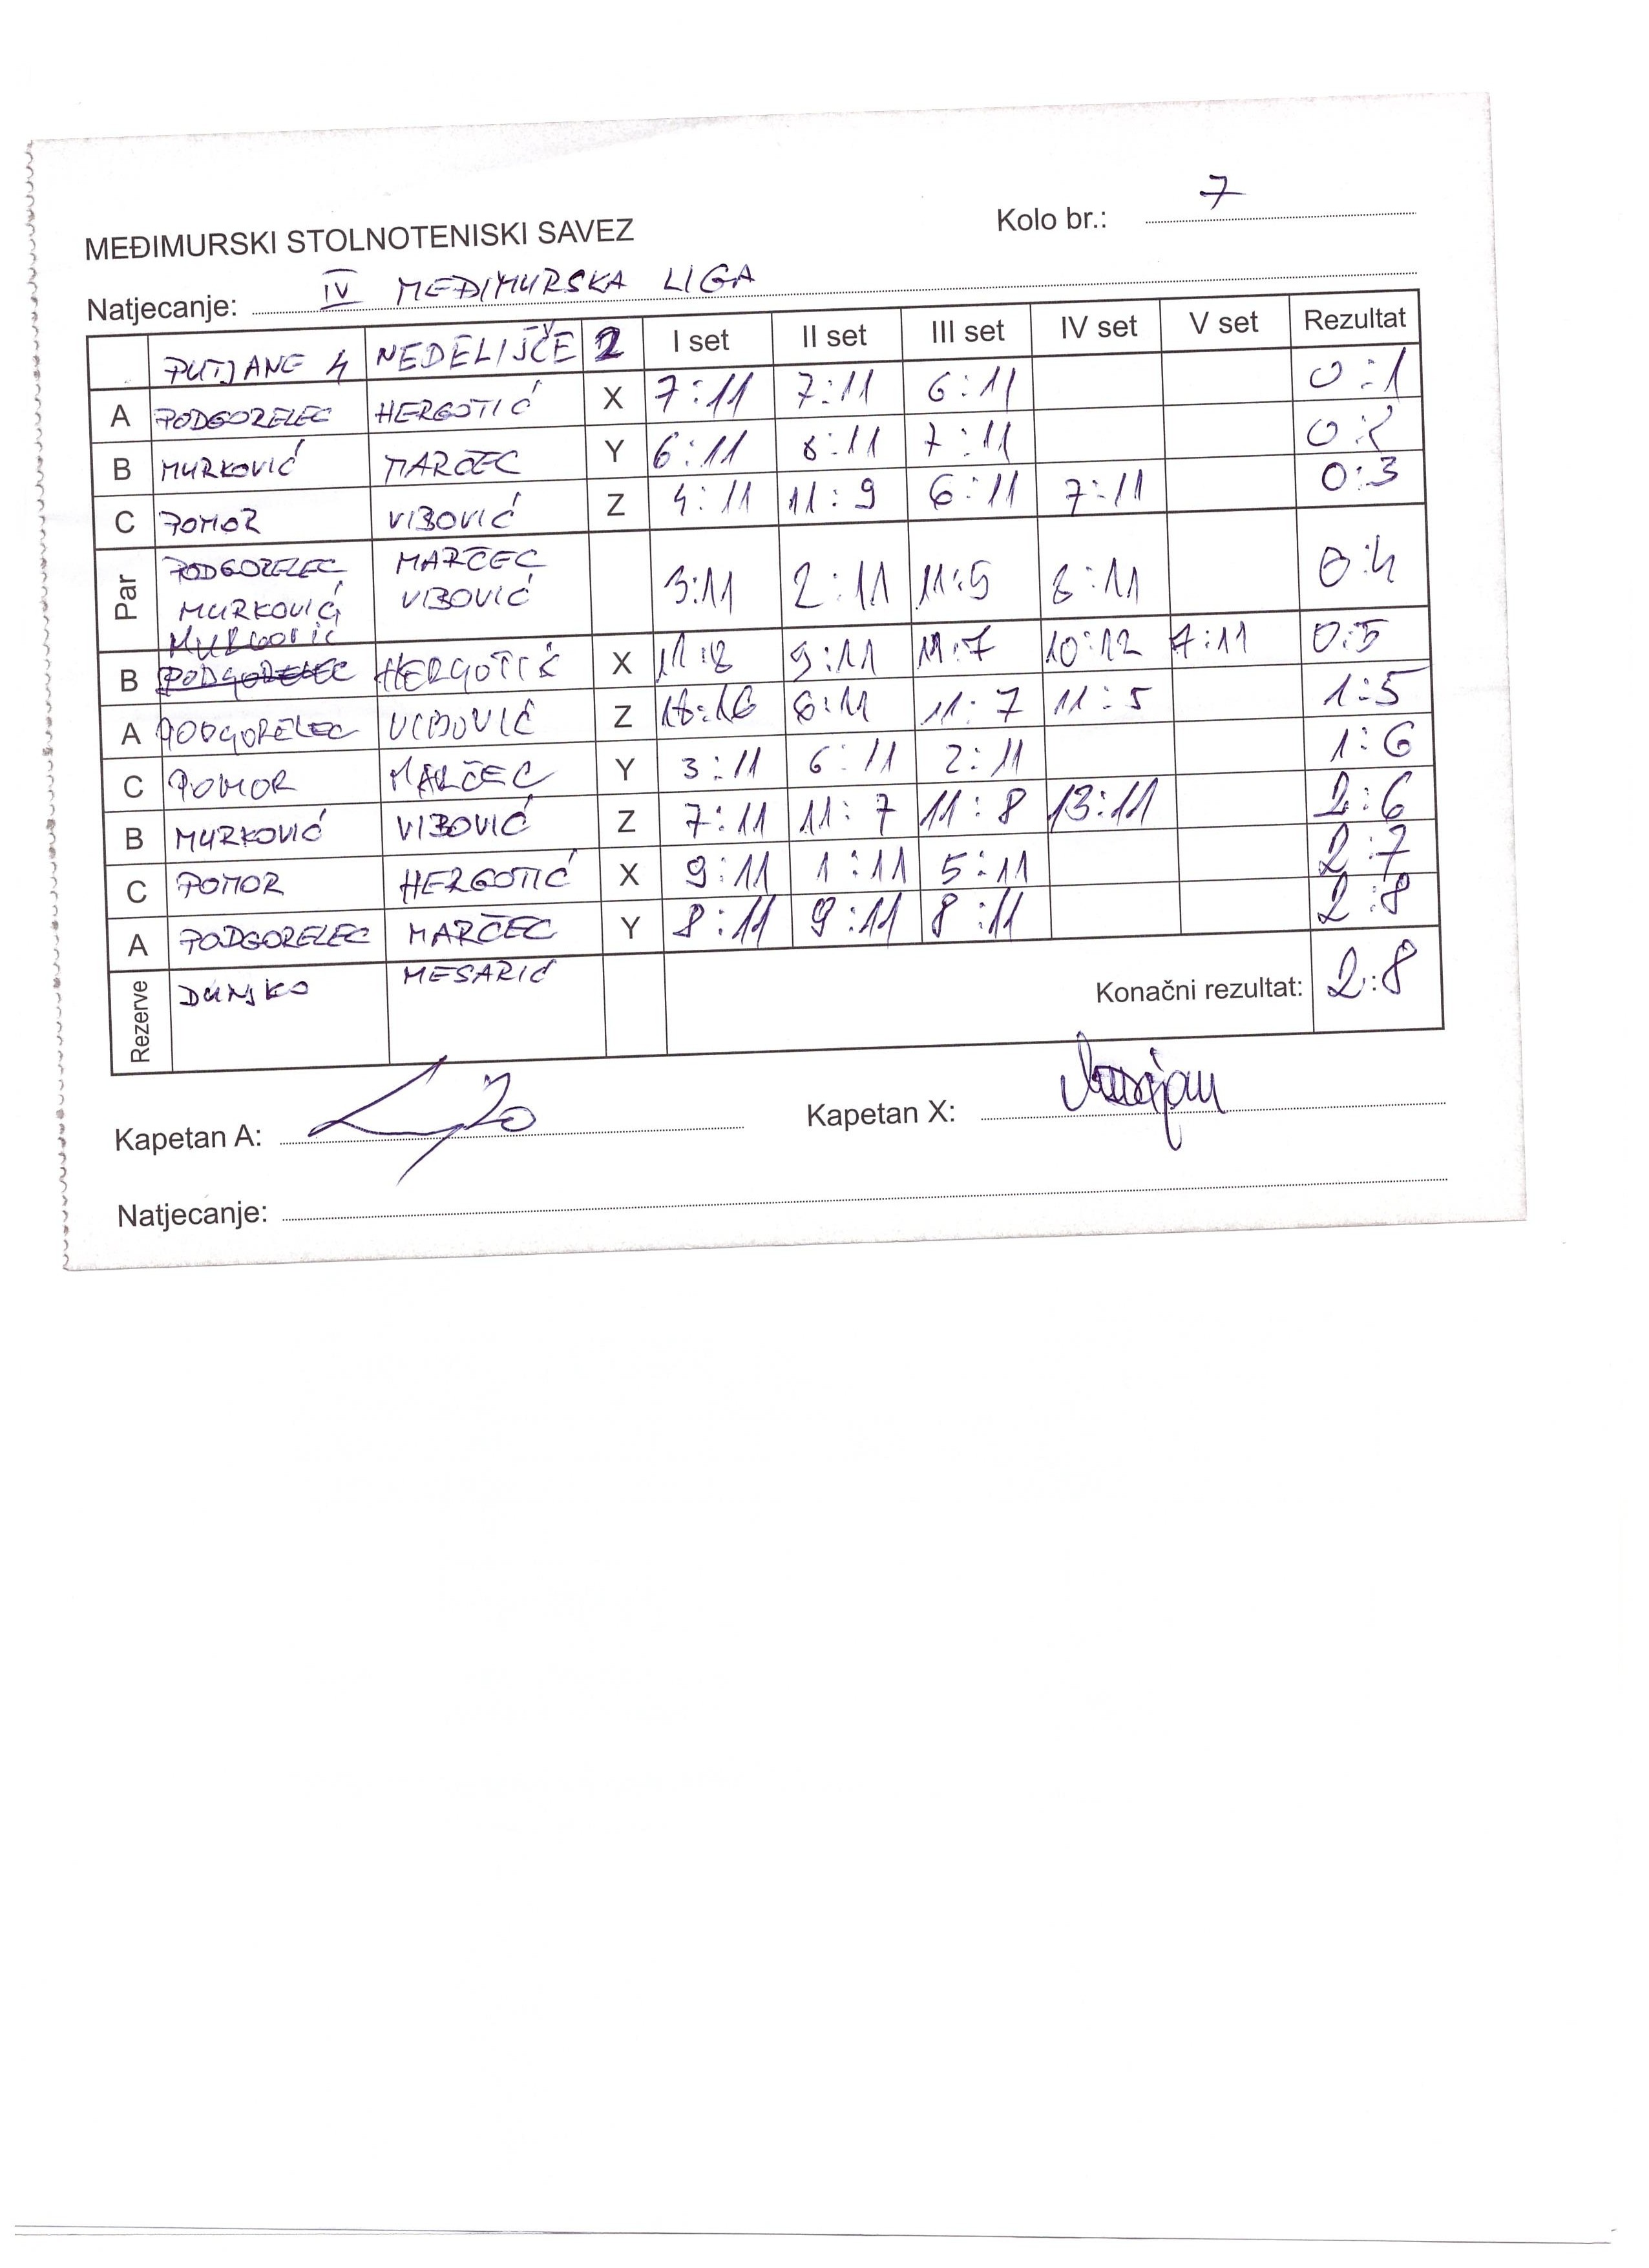 Kolo br.: 7
MEĐIMURSKI STOLNOTENISKI SAVEZ
Natjecanje: IV MEĐIMURSKA LIGA
PUTJANE 4 NEDELIŠĆE 2 I set II set III set IV set V set Rezultat
A PODGORELEC HERGOTIĆ X 7:11 7:11 6:11 0:1
B MURKOVIĆ MARČEC Y 6:11 8:11 7:11 0:2
C POMOR VIBOVIĆ Z 4:11 11:9 6:11 7:11 0:3
Par PODGORELEC MARČEC
MURKOVIĆ VIBOVIĆ 3:11 2:11 11:5 8:11 0:4
MURKOVIĆ
B PODGORELEC HERGOTIĆ X 11:8 9:11 11:7 10:12 7:11 0:5
A PODGORELEC VIBOVIĆ Z 18:16 6:11 11:7 11:5 1:5
C POMOR MARČEC Y 3:11 6:11 2:11 1:6
B MURKOVIĆ VIBOVIĆ Z 7:11 11:7 11:8 13:11 2:6
C POMOR HERGOTIĆ X 9:11 1:11 5:11 2:7
A PODGORELEC MARČEC Y 8:11 9:11 8:11 2:8
Rezerve DUNJKO MESARIĆ Konačni rezultat: 2:8
Kapetan A: Kapetan X:
Natjecanje: